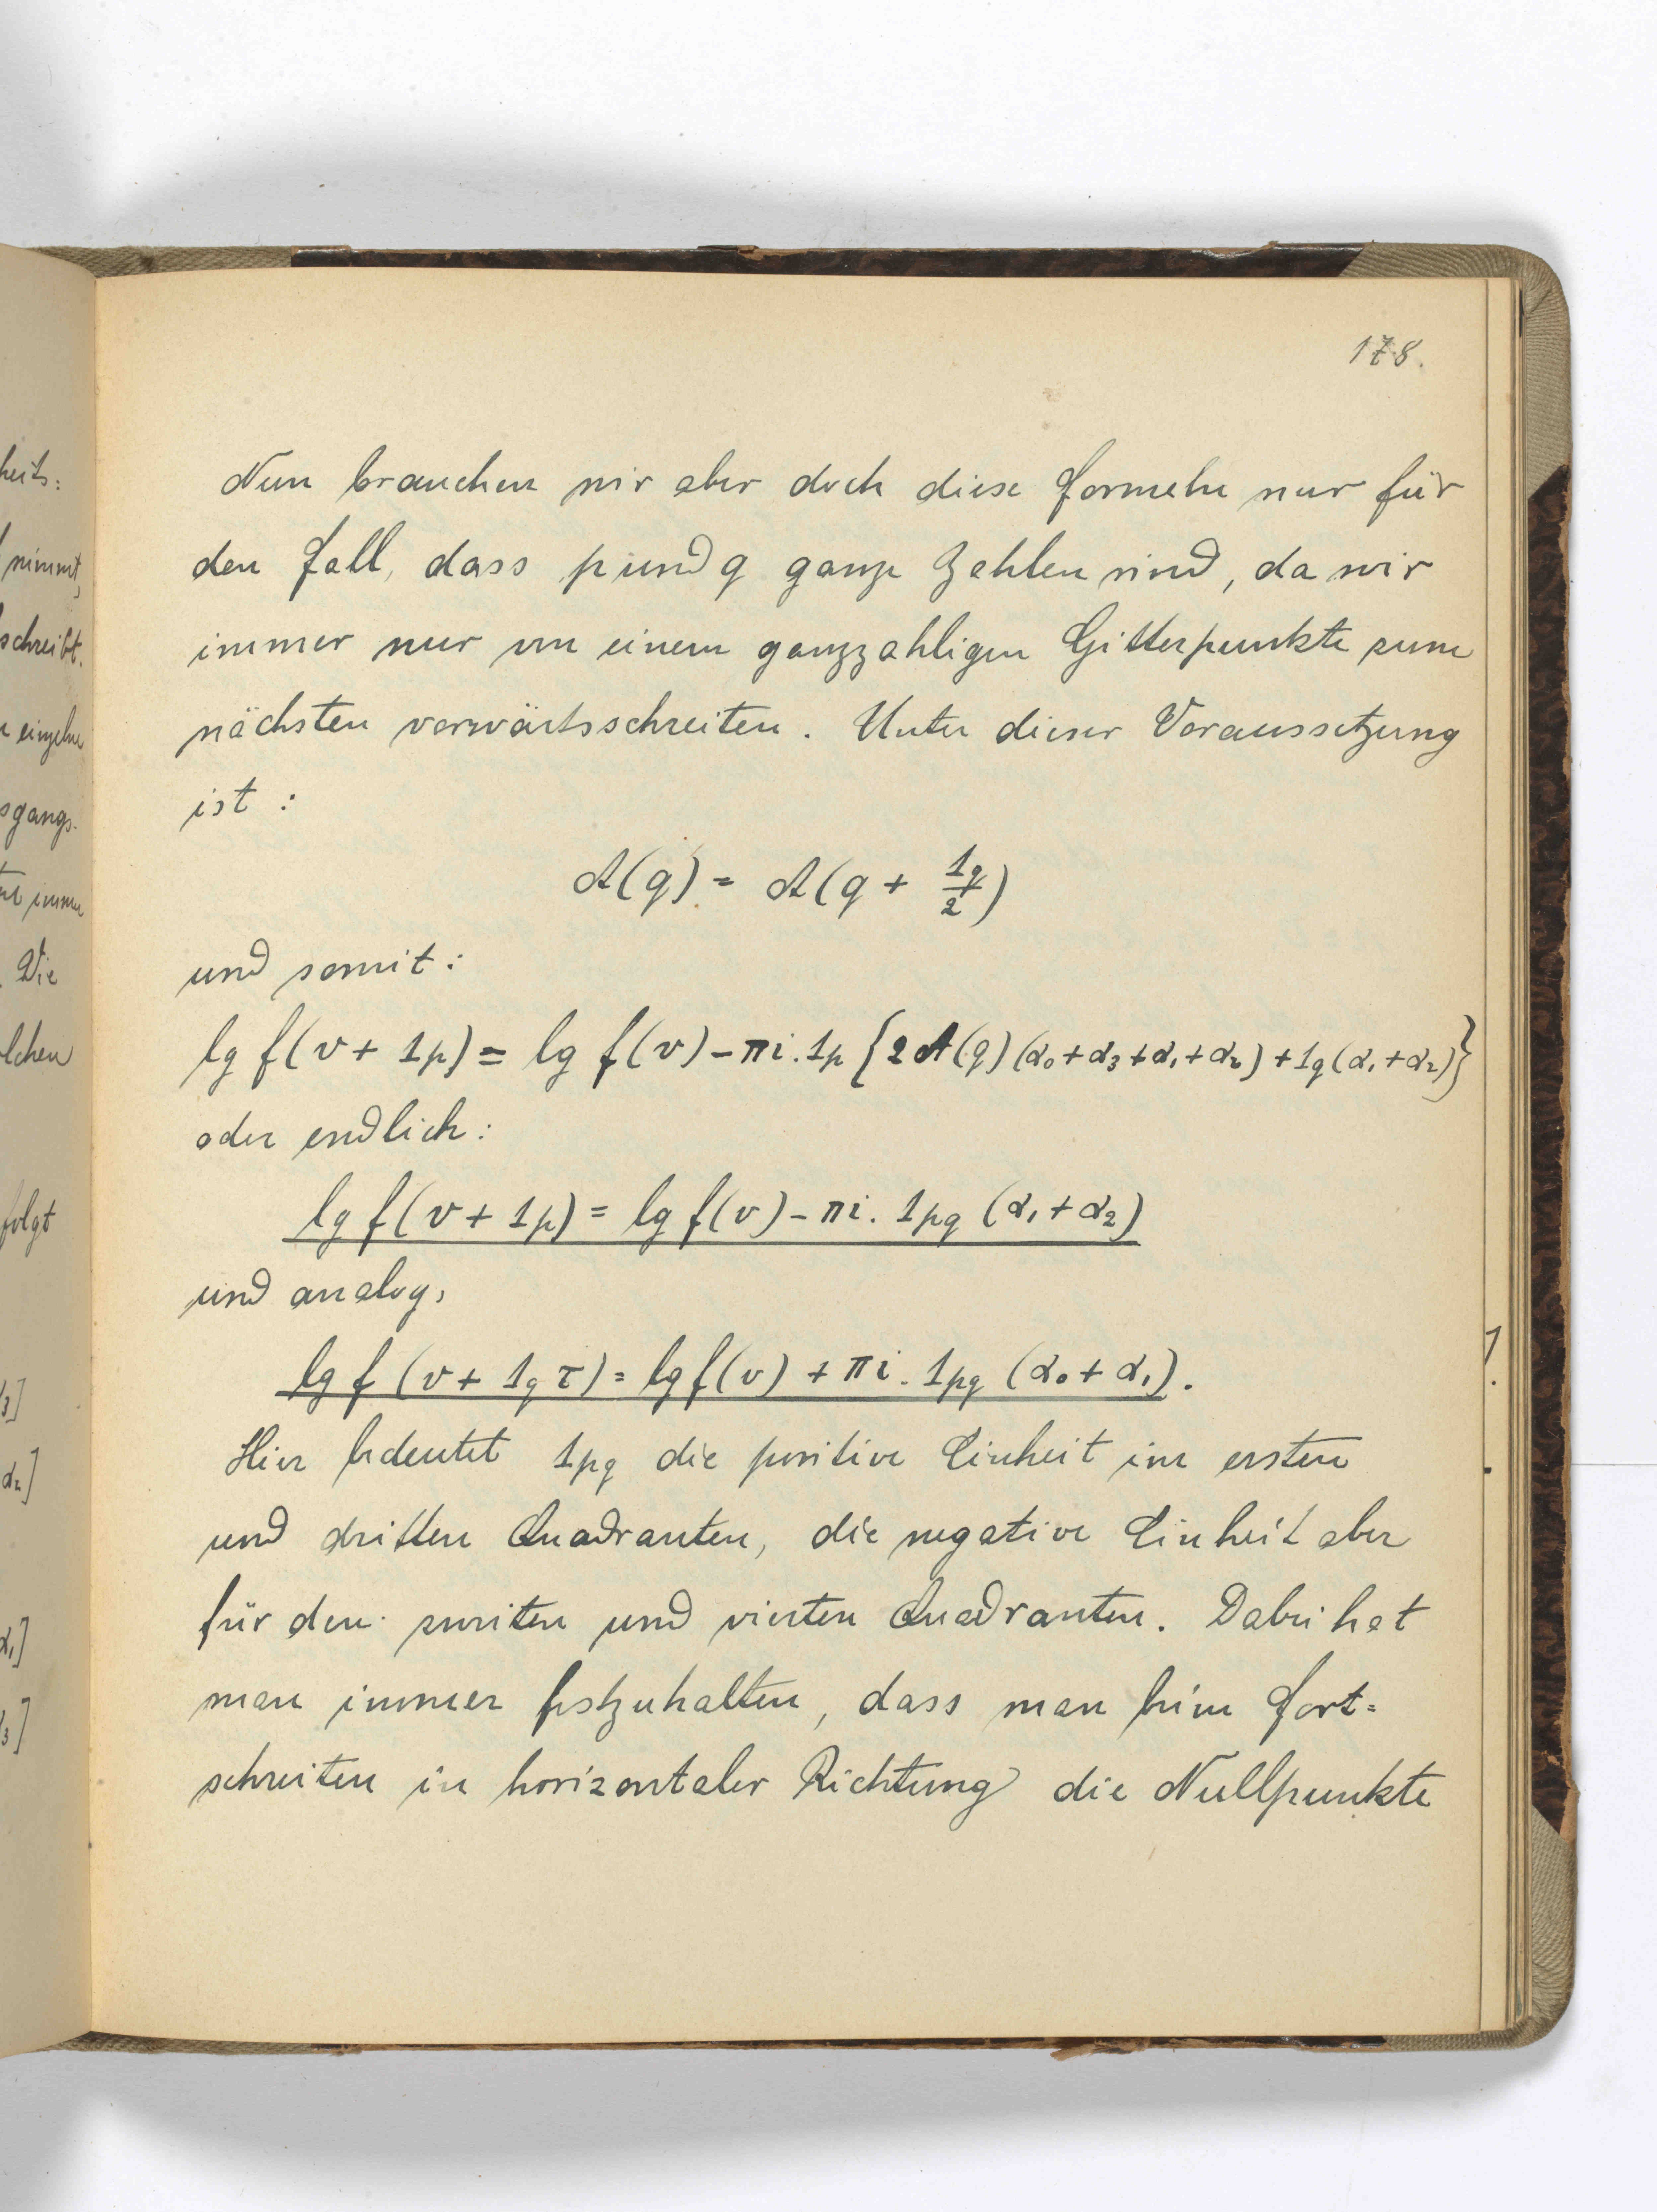 heits:
nimmt,
schreibt.
einzelne
sgangs-
immer
Die
olchen
folgt
3]
α₂]
α₁]
3]
178.
Nun brauchen wir aber doch diese Formeln nur für
den Fall, dass p und q ganze Zahlen sind, da wir
immer nur von einem ganzzahligen Gitterpunkte zum
nächsten vorwärtsschreiten. Unter dieser Voraussetzung
ist:
A(q) = A(q + 1q/2)
und somit:
lg f(v + 1p) = lg f(v) - πi. 1p {2 A(q) (α₀ + α₃ + α₁ + α₂) + 1q (α₁ + α₂)}
oder endlich:
lg f(v + 1p) = lg f(v) - πi. 1pq (α₁ + α₂)
und analog,
lg f (v + 1q τ) = lg f(v) + πi. 1pq (α₀ + α₁).
Hier bedeutet 1pq die positive Einheit im ersten
und dritten Quadranten, die negative Einheit aber
für den zweiten und vierten Quadranten. Dabei hat
man immer festzuhalten, dass man beim Fort=
schreiten in horizontaler Richtung die Nullpunkte